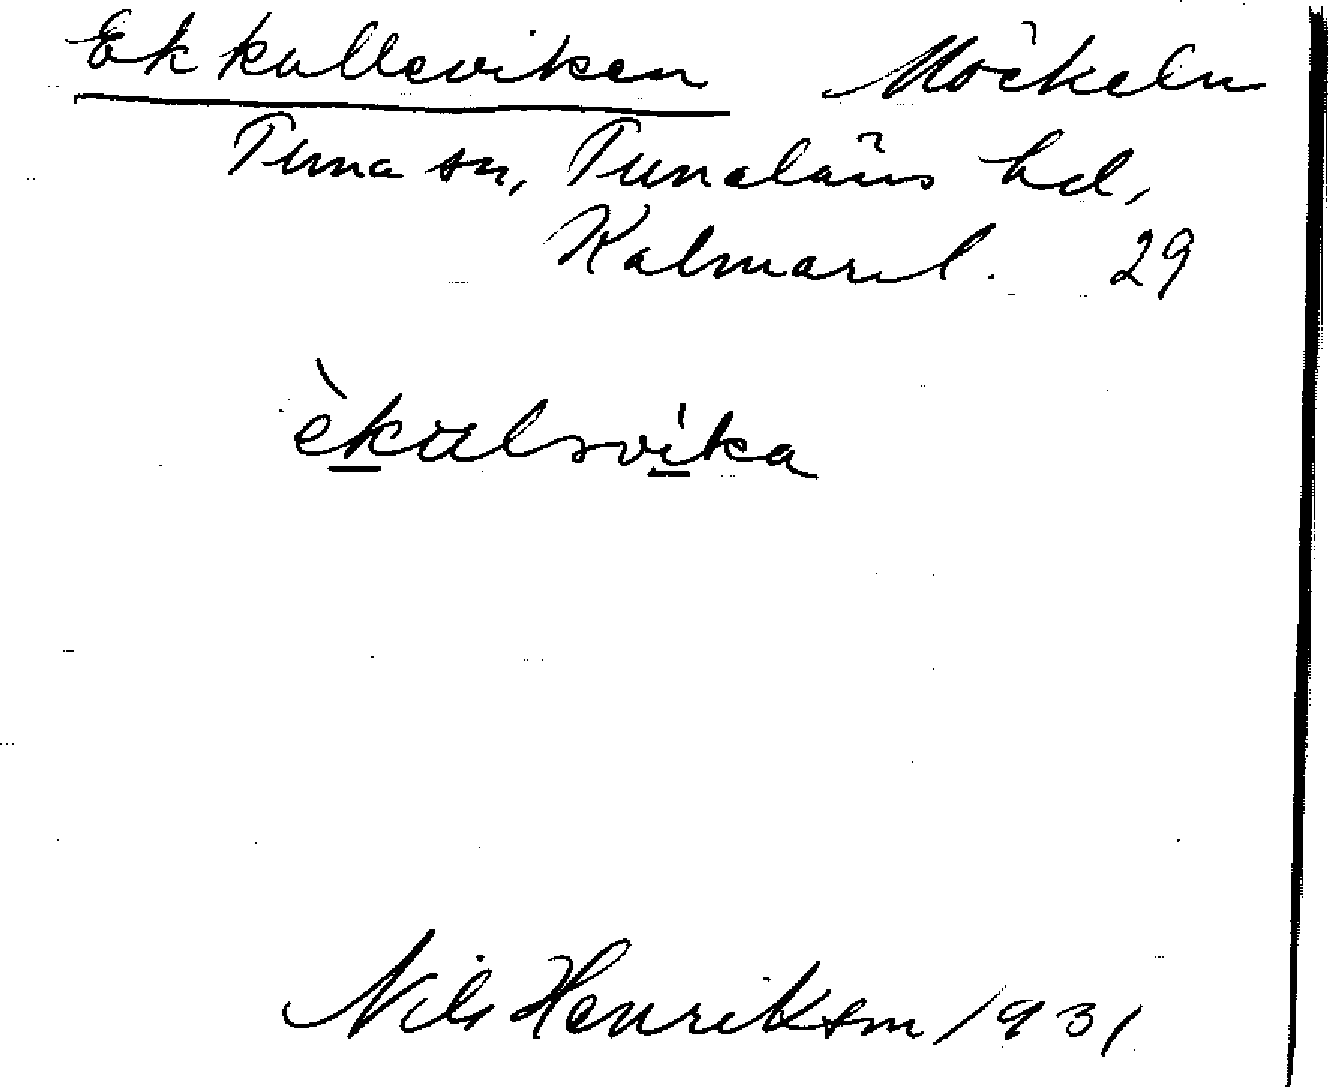 Ekkalleviken Möckeln
Tuna sn, Tunaläns hd,
Kalmar l. 29
èkalsvika
Nils Henrikson 1931